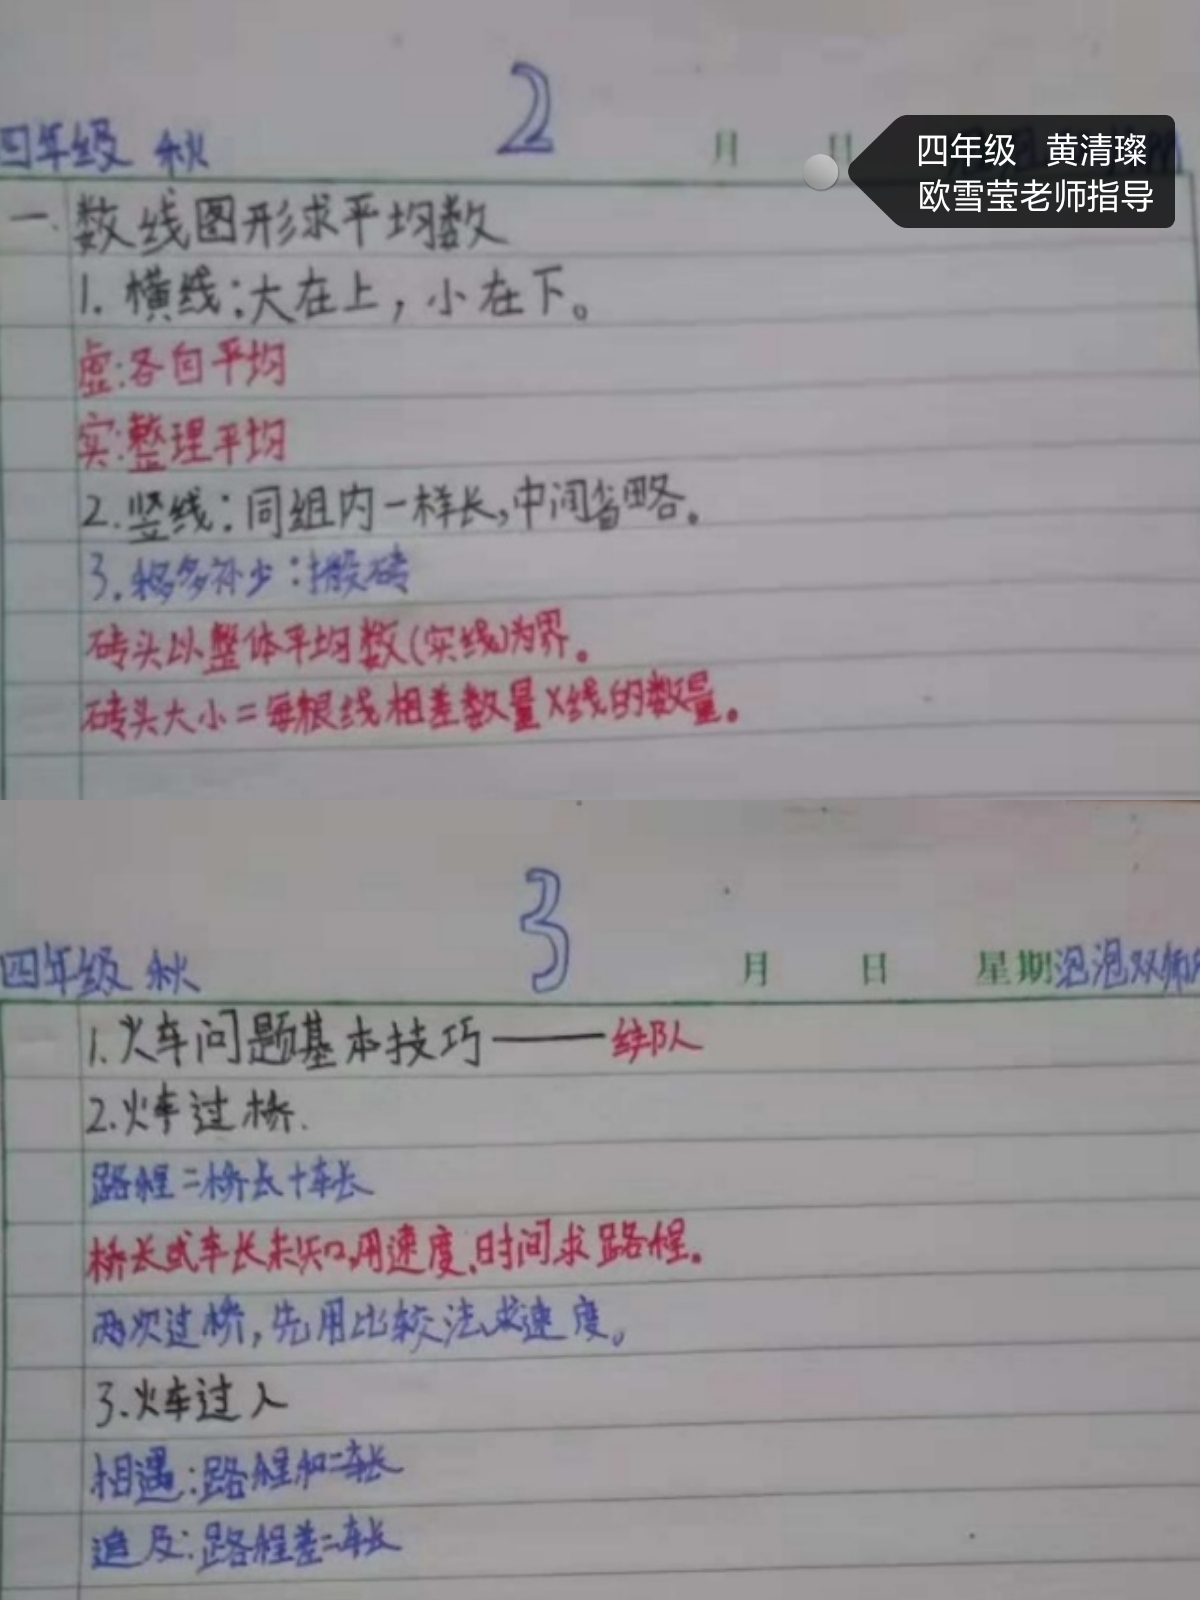 2
四年级 秋
月 日
四年级 黄清璨
欧雪莹老师指导
一、数线图形求平均数
1. 横线:大在上,小在下。
虚:各自平均
实:整理平均
2.竖线:同组内一样长,中间省略。
3.移多补少:搬砖
砖头以整体平均数(实线)为界。
砖头大小=每根线相差数量×线的数量。
3
四年级 秋
月 日 星期泡泡双师
1.火车问题基本技巧——结队
2.火车过桥.
路程=桥长+车长
桥长或车长未知,用速度、时间求路程。
两次过桥,先用比较法求速度。
3.火车过人
相遇:路程和=车长
追及:路程差=车长